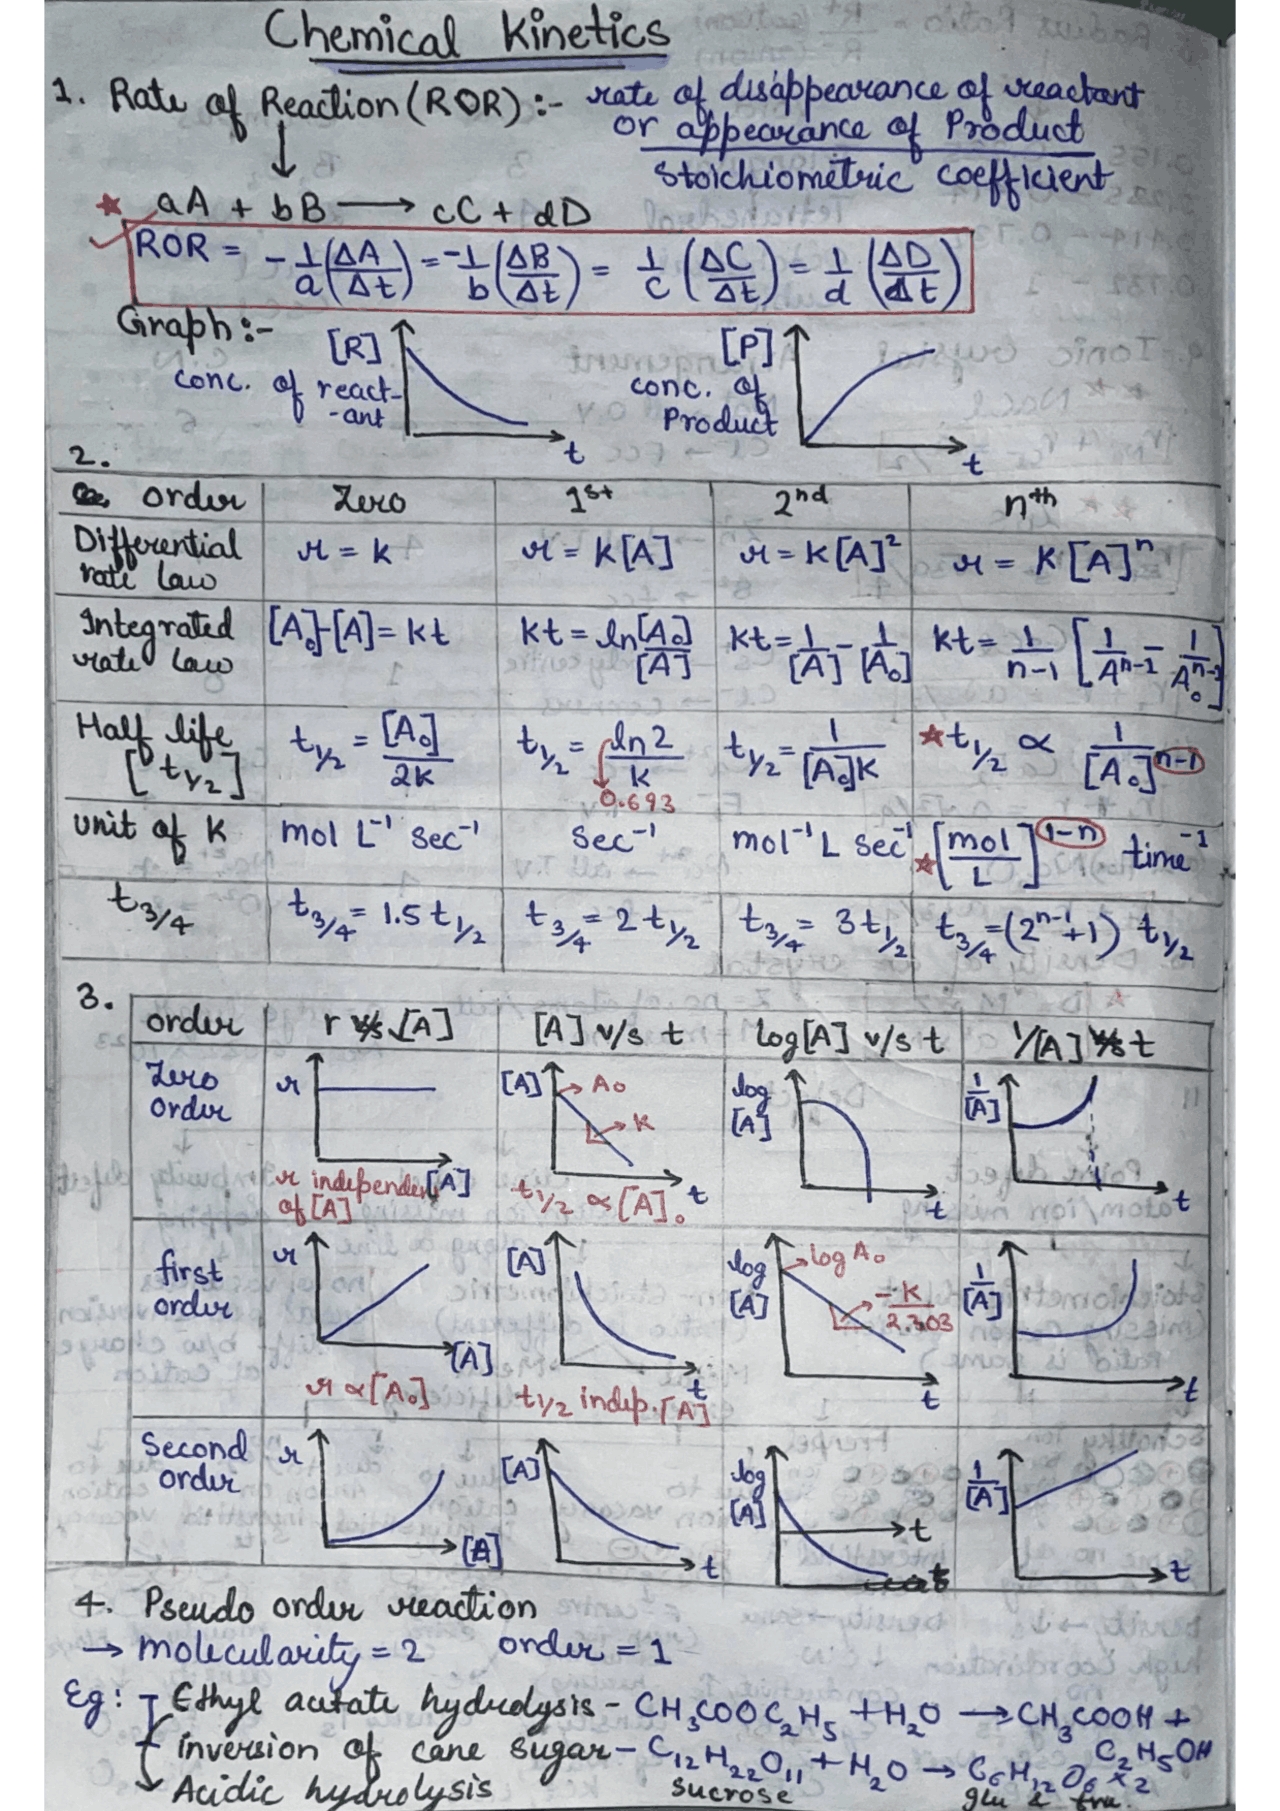 Chemical Kinetics
1. Rate of Reaction (ROR) :- rate of disappearance of reactant
or appearance of Product
Stoichiometric coefficient
★ aA + bB ⟶ cC + dD
ROR = -1/a (ΔA/Δt) = -1/b (ΔB/Δt) = 1/c (ΔC/Δt) = 1/d (ΔD/Δt)
Graph :-
[R] conc. of react-
-ant
t
[P] conc. of
Product
t
2.
order | Zero | 1st | 2nd | nth
Differential rate law | r = k | r = K[A] | r = K[A]² | r = K[A]ⁿ
Integrated rate law | [A₀]-[A] = kt | kt = ln [A₀]/[A] | kt = 1/[A] - 1/[A₀] | kt = 1/n-1 [1/Aⁿ⁻¹ - 1/A₀ⁿ⁻¹]
Half life [t1/2] | t1/2 = [A₀]/2k | t1/2 = ln 2/k → 0.693 | t1/2 = 1/[A₀]k | ★ t1/2 ∝ 1/[A₀]ⁿ⁻¹
unit of K | mol L⁻¹ sec⁻¹ | sec⁻¹ | mol⁻¹ L sec⁻¹ | ★ [mol/L]¹⁻ⁿ time⁻¹
t3/4 | t3/4 = 1.5 t1/2 | t3/4 = 2 t1/2 | t3/4 = 3 t1/2 | t3/4 = (2ⁿ⁻¹+1) t1/2
3.
order | r v/s [A] | [A] v/s t | log[A] v/s t | 1/[A] v/s t
Zero order | r [A] | [A] A₀ K t | log [A] t | 1/[A] t
r independent of [A] | t1/2 ∝ [A]₀
first order | r [A] | [A] t | log [A] log A₀ -K/2.303 t | 1/[A] t
r ∝ [A₀] | t1/2 indep. [A]
Second order | r [A] | [A] t | log [A] t | 1/[A] t
4. Pseudo order reaction
→ molecularity = 2 order = 1
Eg : Ethyl acetate hydrolysis - CH₃COOC₂H₅ + H₂O ⟶ CH₃COOH +
C₂H₅OH
inversion of cane sugar - C₁₂H₂₂O₁₁ + H₂O → C₆H₁₂O₆ x 2
Acidic hydrolysis sucrose glu & fru.